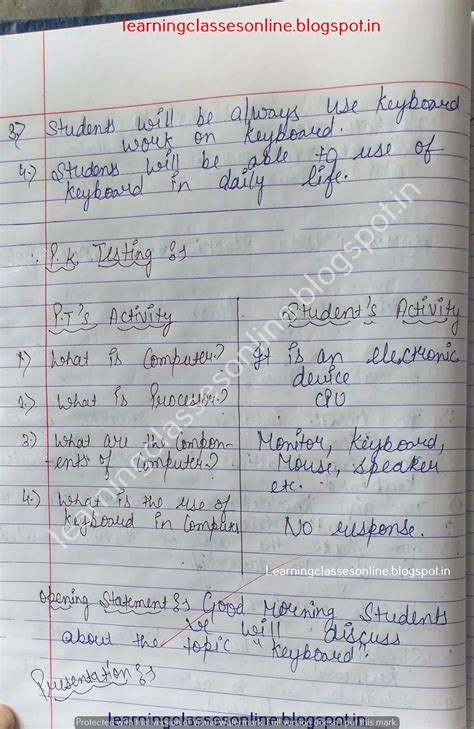 learningclassesonline.blogspot.in
3.) Students will be always use Keyboard
work on Keyboard.
4.) Students will be able to use of
Keyboard in daily life.
P.K Testing :-
P.T's Activity
Student's Activity
1.) What is Computer?
It is an electronic
device
2.) What is Processor?
CPU
3.) What are the Compon-
-ents of Computer?
Monitor, Keyboard,
Mouse, speaker
etc.
4.) What is the use of
Keyboard in Computer
No response.
Learningclassesonline.blogspot.in
Opening Statement :- Good Morning Students
we will discuss
about the topic "Keyboard".
Presentation :-
learningclassesonline.blogspot.in
Protected with free version of Visual Watermark. Full version doesn't put this mark.
learningclassesonline.blogspot.in